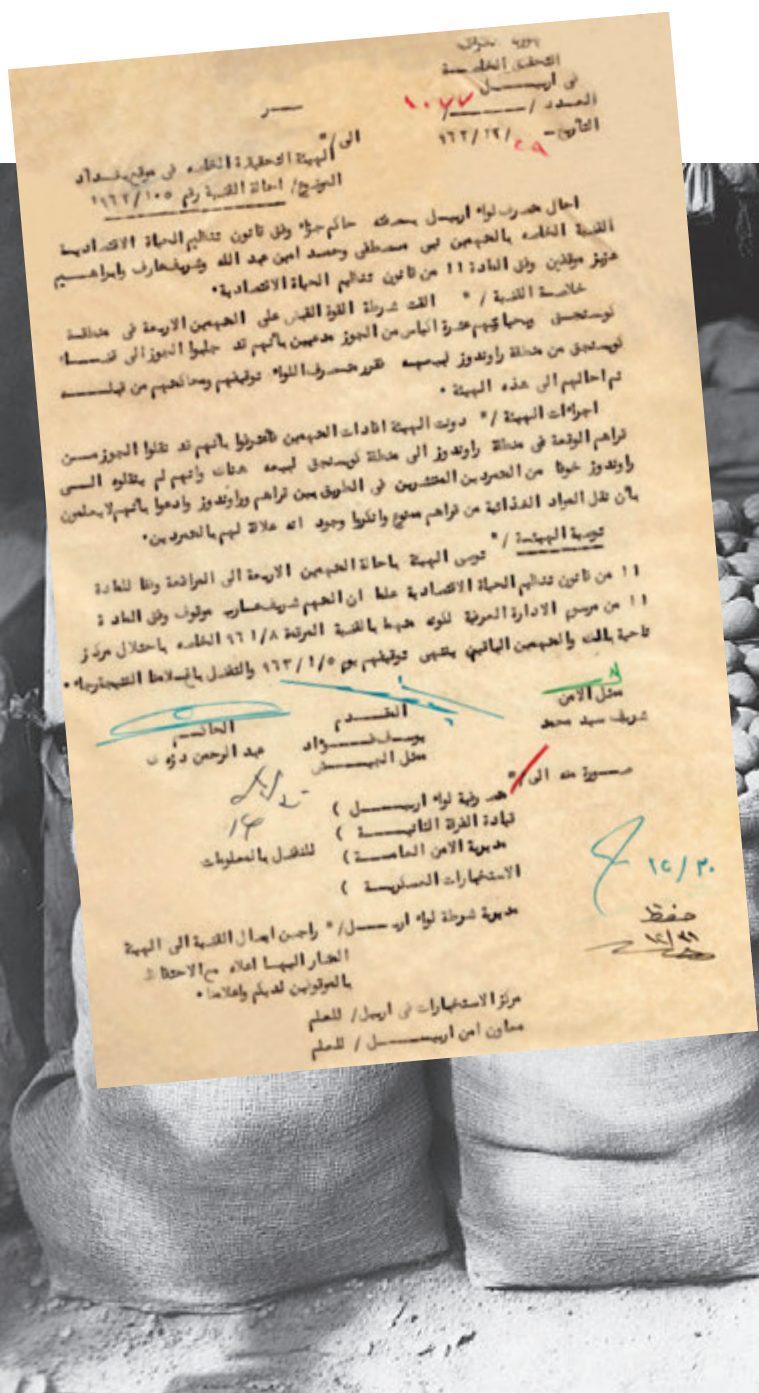 التحقيق الخاصة
في اربيل
العدد / ١٠٧٧ /
التأريخ ـ ٢٩ /١٢/ ٩٦٢
سر
الى/*
الهيئة التحقيقية الخاصه في موقع بغداد
الموضوع/ احالة القضية رقم ١٠٥/ ١٩٦٢
احال متصرف لواء اربيل بصفته حاكم جزاء وفق قانون تنظيم الحياة الاقتصادية
القضية الخاصه بالمتهمين نبي مصطفى وحمد امين عبد الله وشريف عارف وابراهيم
عزيز موقفين وفق المادة ١١ من قانون تنظيم الحياة الاقتصادية٠
خلاصة القضية / * القت شرطة القوة القبض على المتهمين الاربعة في منطقة
كويسنجق وبحيازتهم عشرة اكياس من الجوز مدعين بأنهم قد جلبوا الجوز الى قضاء
كويسنجق من منطقة راوندوز لبيعه فقرر متصرف اللواء توقيفهم ومحاكمتهم من قبله
ثم احالهم الى هذه الهيئة ٠
اجراءات الهيئة /* دونت الهيئة افادات المتهمين فأعترفوا بأنهم قد نقلوا الجوز من
قراهم الوقعة في منطقة راوندوز الى منطقة كويسنجق لبيعه هناك وانهم لم ينقلوه الى
راوندوز خوفا من المتمردين المنتشرين في الطريق بين قراهم وراوندوز وادعوا بأنهم لايعلمون
بأن نقل المواد الغذائية من قراهم ممنوع وانكروا وجود اية علاقة لهم بالمتمردين٠
توصية الهيئة / * توصي الهيئة باحالة المتهمين الاربعة الى المرافعة وفقا للمادة
١١ من قانون تنظيم الحياة الاقتصادية علما ان المتهم شريف عارف موقوف وفق المادة
١١ من مرسوم الادارة العرفية لكونه متهما بالقضية المرقمة ٩٦١/٨ الخاصه باحتلال مركز
ناحية بالك والمتهمين الباقين ينتهي توقيفهم يوم ١/٥/ ٩٦٣ والتفضل باعلامنا النتيجة رجاء٠
ممثل الامن
شريف سيد محمد
المقدم
يوسف فؤاد
ممثل الجيش
الحاكم
عبد الرحمن
صورة منه الى/*
متصرفية لواء اربيل )
قيادة الفرقة الثانية )
مديرية الامن العامة ) للتفضل بالمعلومات
الاستخبارات العسكرية )
مديرية شرطة لواء اربيل/* راجين ايصال القضية الى الهيئة
المشار اليها اعلاه مع الاحتفاظ
بالموقوفين لديكم واعلامنا ٠
مركز الاستخبارات في اربيل/ للعلم
معاون امن اربيل / للعلم
١٢/٣٠
حفظ
١٢/٣١